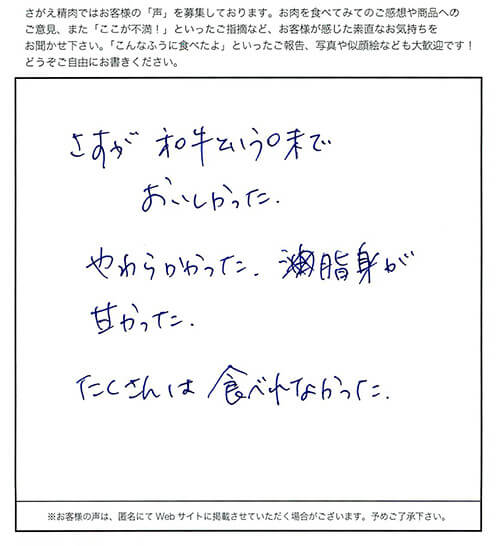 さがえ精肉ではお客様の「声」を募集しております。お肉を食べてみてのご感想や商品への
ご意見、また「ここが不満！」といったご指摘など、お客様が感じた素直なお気持ちを
お聞かせ下さい。「こんなふうに食べたよ」といったご報告、写真や似顔絵なども大歓迎です！
どうぞご自由にお書きください。
さすが 和牛という味で
おいしかった.
やわらかかった. 脂身が
甘かった.
たくさんは 食べれなかった.
※お客様の声は、匿名にて Web サイトに掲載させていただく場合がございます。予めご了承下さい。